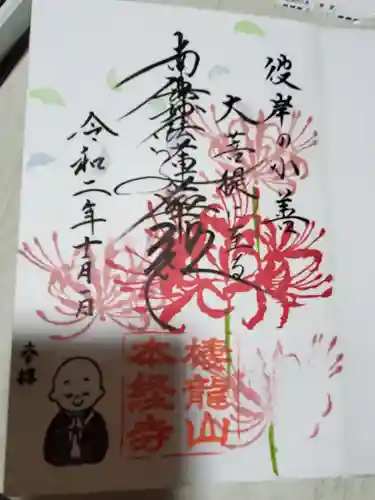 彼岸の小善
大菩提に至る
南無妙法蓮華経
令和二年十月 日
参拝
棲龍山
本経寺